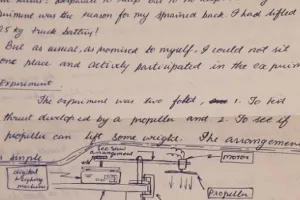 was the reason for my sprained back. I had lifted
25 kg truck battery!
But as usual, as promised to myself, I could not sit
one place and actively participated in the experim
Experiment:
The experiment was two fold, 1. To test
thrust developed by a propeller and 2. To see if
propeller can lift some weight. The arrangement
simple
arrangement
motor
digital
weighing
machine
Propeller